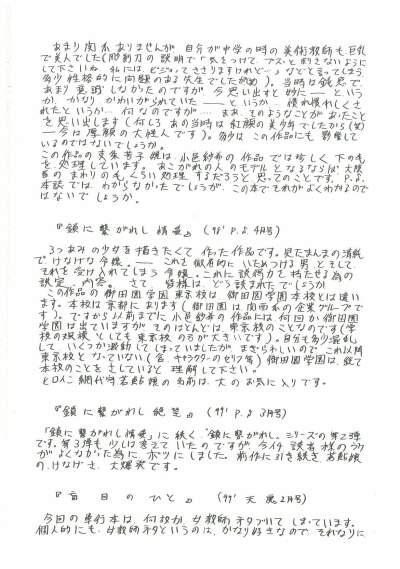 あまり関係ありませんが、自分が中学の時の美術教師も、巨乳
で美人でした(彫刻刀の説明で「気をつけて、ブスっと刺さないように
して下さいね。私には、ビシッってささりますけれど…」などと言ってしまう
多少性格的に問題のある先生でしたがね)。当時は鈍感で
あまり意識しなかったのですが、今思い出すと妙に——という
か、かなりかわいがられていた——というか…慣れ慣れしくさ
れたというか…何なのですが…まぁ、そのようなことがあったこと
を思い出します(何しろ、あの当時は紅顔の美少年でしたから(笑)
——今は厚顔の大怪人です)。多分は、この作品にも、影響して
いるのではないでしょうか。
嬢は、小邑紗希の作品では珍しく、下の毛
を処理しています。
本誌では、わからなかったでしょうが、この本でそれがよくわかるので
はないでしょうか。
『鎖に繋がれし情景』('98 P.よ4月号)
3つあみの少女を描きたくて作った作品です。見たまんまの清純
でけなげな令嬢。——これを徹底的にいためつける男、そして
それを受け入れてしまう令嬢。これに説得力を持たせる為の
設定、内容。さて、皆様は、どう読まれたでしょうか。
この作品の御田園学園東京校は、御田園学園本校とは違い
ます。本校は京都にあります(御田園は関西系の企業グループで
す)。ですから以前までに小邑紗希の作品には、何回か御田園
学園は出ていますが、そのほとんどは、東京校のことなのです(学
校の規模としても東京校の方が大きいです)。自分も多少混乱
して、いくつか激動してしまっていましたが、まぎらわしいので、これ以後
東京校となっていない(含、キャラクターのセリフ等)御田園学園は、総て
本校のことをしていると理解して下さい。
ヒロイン網代守若鮎嬢の名前は、大のお気に入りです。
『鎖に繋がれし絶望』('99 P.よ3月号)
「鎖に繋がれし情景」に続く“鎖に繋がれし”シリーズの第2弾
です。第3弾も少しは考えていたのですが、今イチ読者様のウケ
がよくなかった為に、ボツにしました。前作に引き続き、若鮎嬢
の、けなげさ、大爆発です。
『盲目のひと』('99 天魔2月号)
今回の単行本は、何故か、女教師ネタづいてしまっています。
個人的にも、女教師ネタというのは、かなり好きなので、それなりに